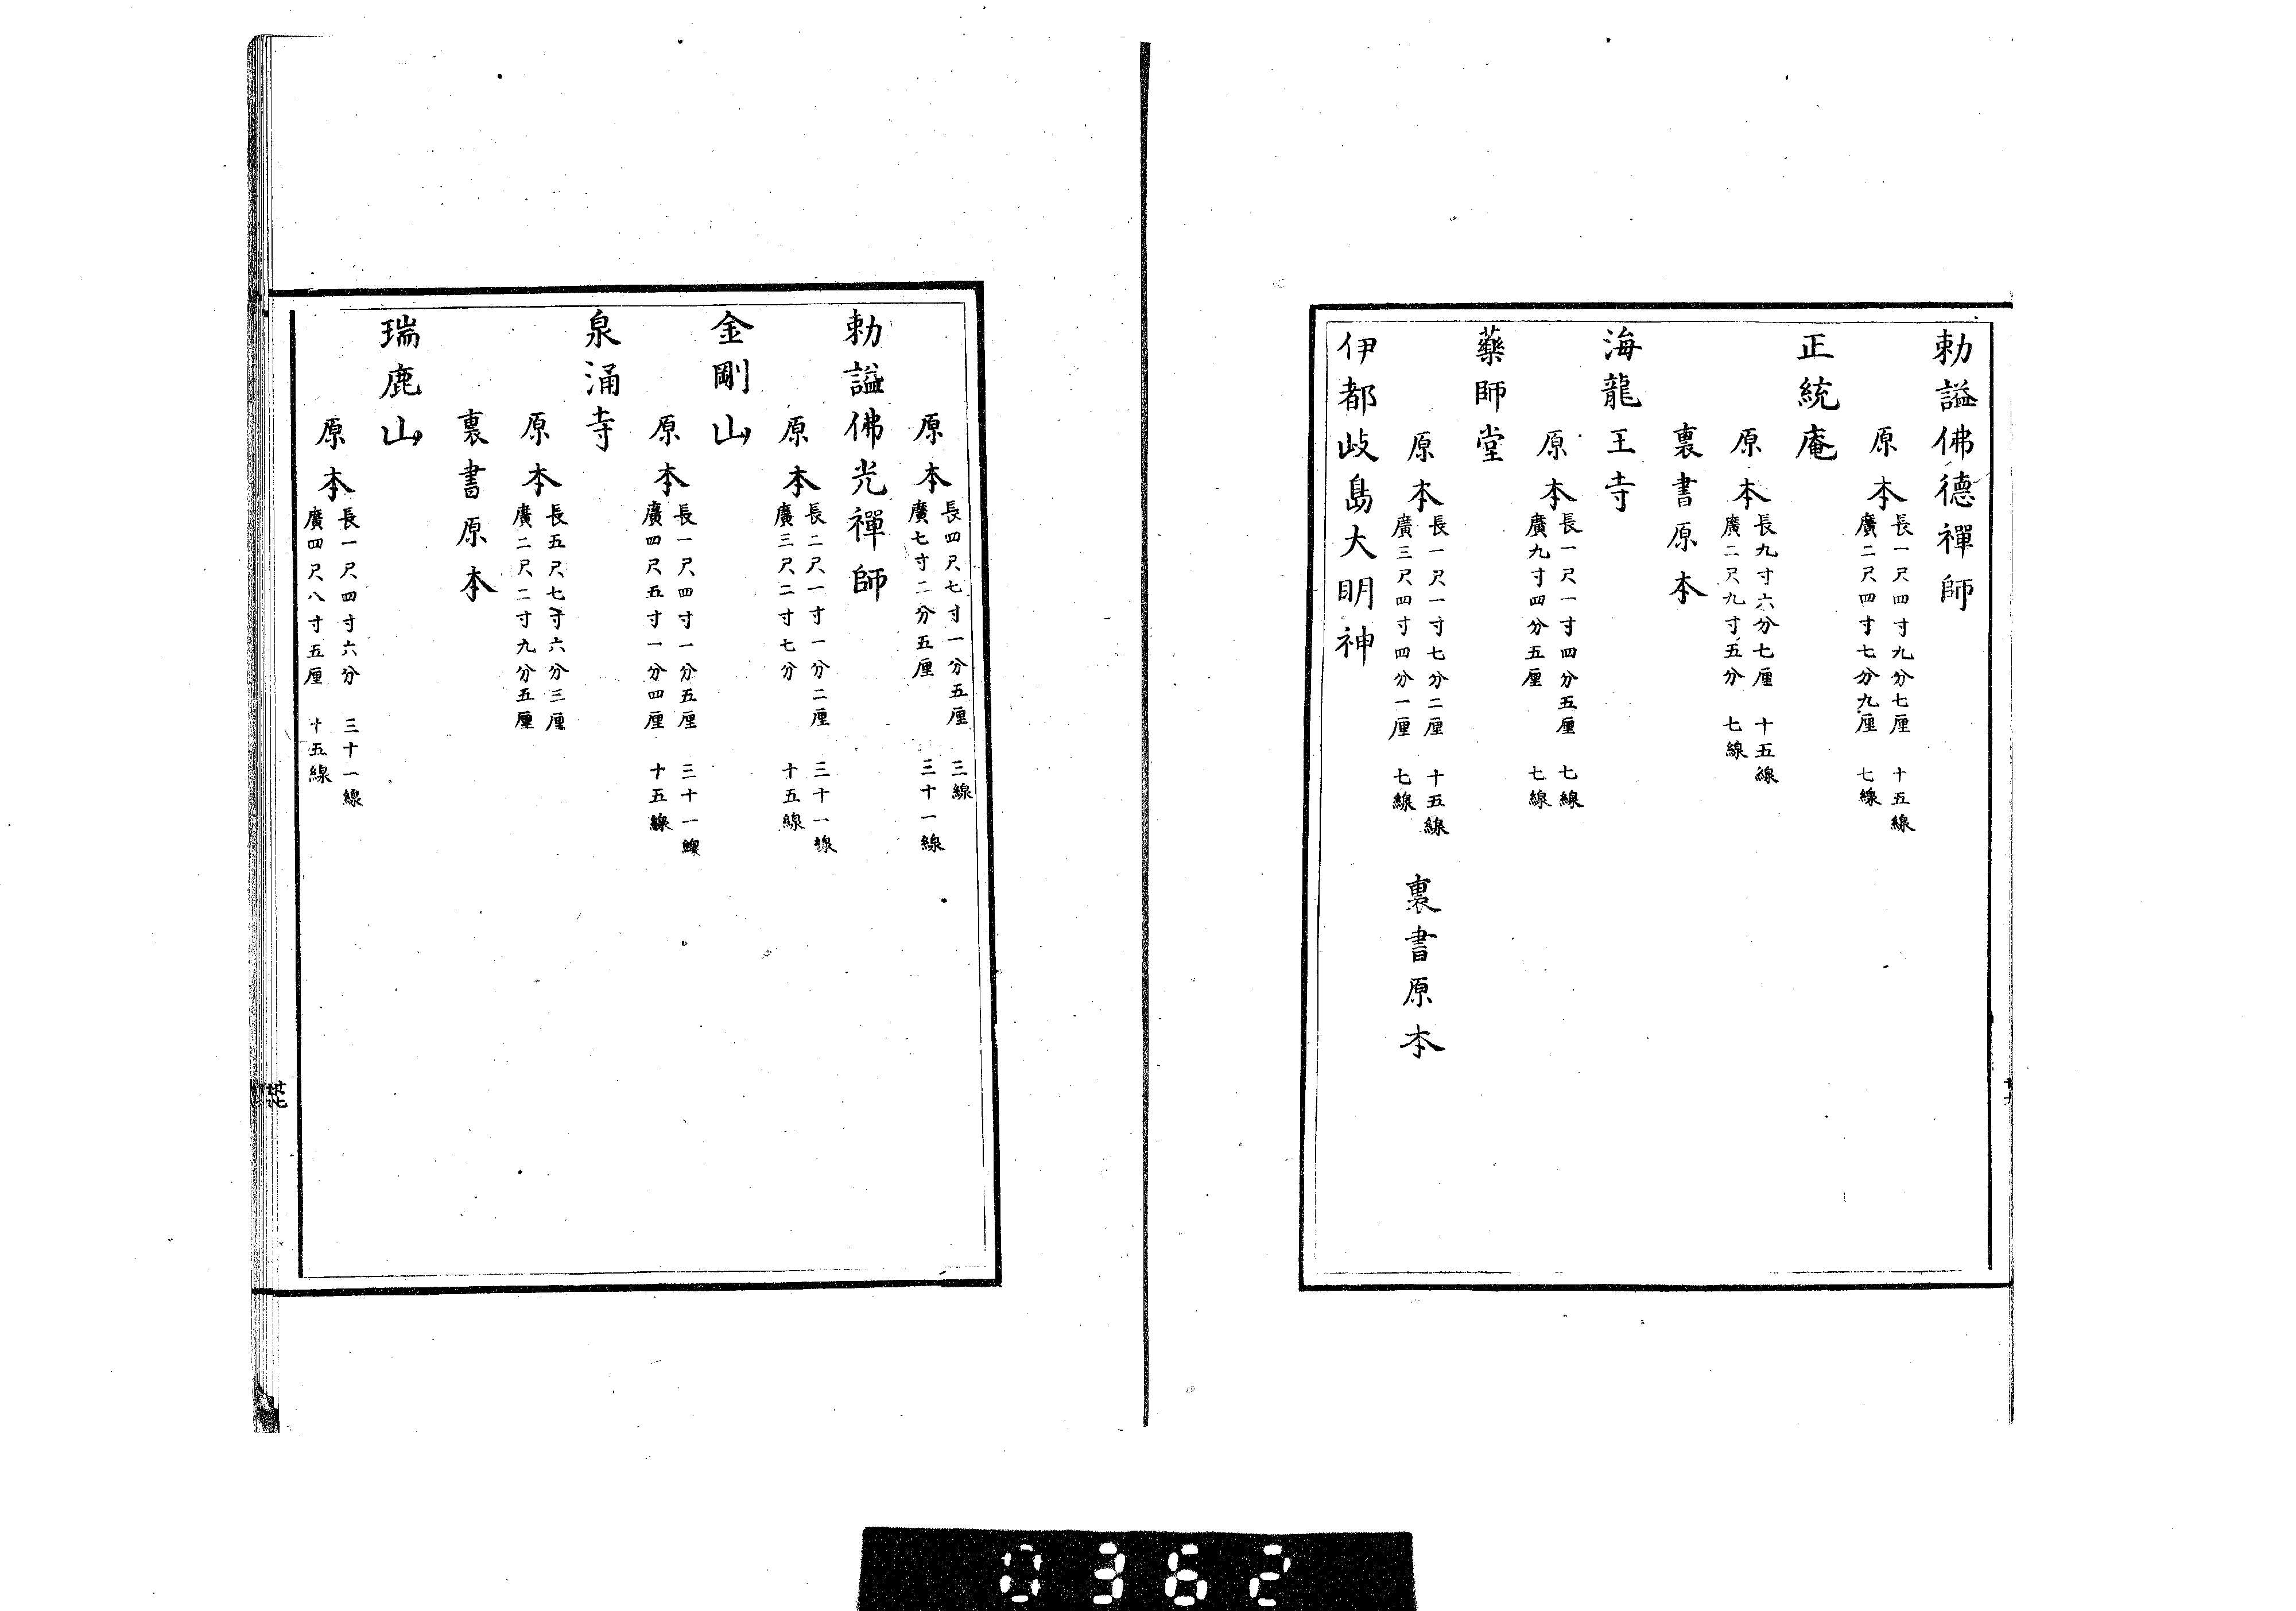 勅謚佛德禪師
原本
長一尺四寸九分七厘　十五線
廣二尺四寸七分九厘　七線
正統庵
原本
長九寸六分七厘　十五線
廣二尺九寸五分　七線
裏書原本
海龍王寺
原本
長一尺一寸四分五厘　七線
廣九寸四分五厘　七線
藥師堂
原本
長一尺一寸七分二厘　十五線
廣三尺四寸四分一厘　七線
裏書原本
伊都歧島大明神
原本
長四尺七寸一分五厘　三線
廣七寸二分五厘　三十一線
勅謚佛光禪師
原本
長二尺一寸一分二厘　三十一線
廣三尺二寸七分　十五線
金剛山
原本
長一尺四寸一分五厘　三十一線
廣四尺五寸一分四厘　十五線
泉涌寺
原本
長五尺七寸六分三厘
廣二尺二寸九分五厘
裏書原本
瑞鹿山
原本
長一尺四寸六分　三十一線
廣四尺八寸五厘　十五線
0362